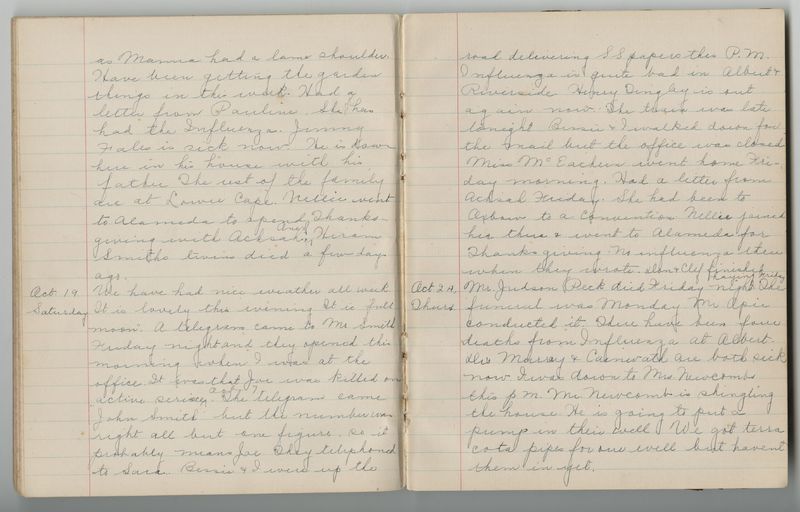 as Mamma had a lame shoulder.
Have been getting the garden
things in this week. Had a
letter from Pauline. She has
had the Influenza. Jimmy
Fales is sick now. He is down
here in his house with his
father The rest of the family
are at Lower Cape. Nellie went
to Alameda to spend Thanks-
giving with Achsah. Hiram
Smiths twins died a few days
ago.
Oct 19 We have had nice weather all week
Saturday It is lovely this evening It is full
moon. A telegram came to Mr Smith
Friday night and they opened this
morning when I was at the
office. It was that Joe was killed on
active service, The telegram came
John Smith but the number was
right all but one figure. so it
probably means Joe They telephoned
to Sara. Bessie & I were up the
road delivering S S papers this P.M.
Influenza is quite bad in Albert &
Riverside Henry Dingley is out
again now. The train was late
tonight Bessie & I walked down for
the mail but the office was closed
Miss McEachern went home Fri-
day morning. Had a letter from
Achsah Friday. She had been to
Oxbow to a Convention Nellie joined
her there & went to Alameda for
Thanksgiving. No influenza there
when they wrote. Don & Clef finished
plowing Friday
Oct 24 Mr. Judson Peck died Friday night The
Thurs. funeral was Monday Mr Opie
conducted it. There have been four
deaths from Influenza at Albert.
Drs Murray & Carnwath are both sick
now I was down to Mrs Newcombs
this p.m. Mr Newcomb is shingling
the house. He is going to put a
pump in their well. We got terra
cota pipes for our well but havent
them in yet.